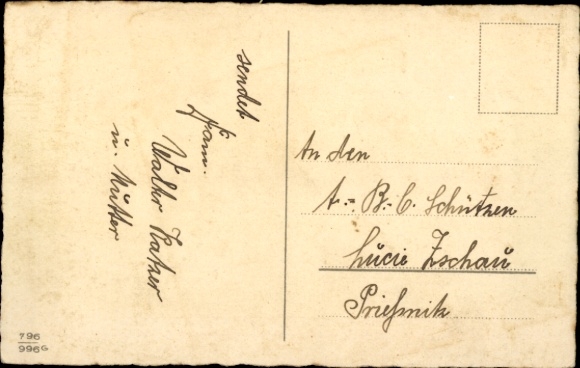 sendet
Fam.
Walter Katzer
u. Mutter
An den
A.-B.-C. Schützen
Lucie Zschau
Prießnitz
796
996 G